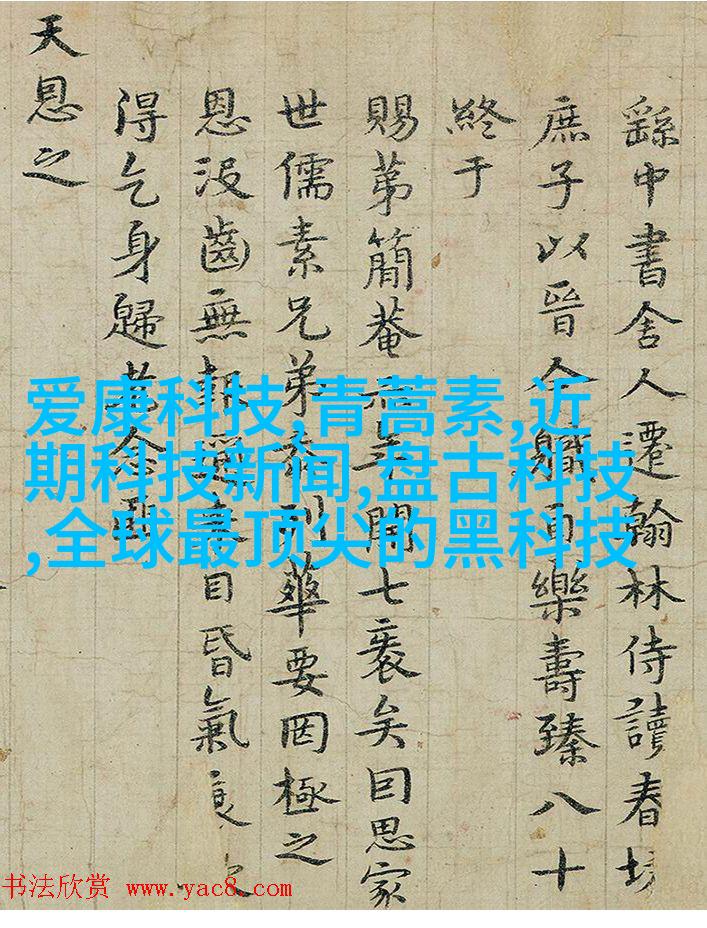 繇中書舍人遷翰林侍讀春坊
庶子以晉今軄而樂壽臻八十
終于
賜第簡菴
開七袠矣囙思家
世儒素兄弟
列華要罔極之
恩沒齒無
目昏氣
得乞身歸
天恩之
爱康科技,青蒿素,近
期科技新闻,盘古科技
,全球最顶尖的黑科技
书法欣赏 www.yac8.com